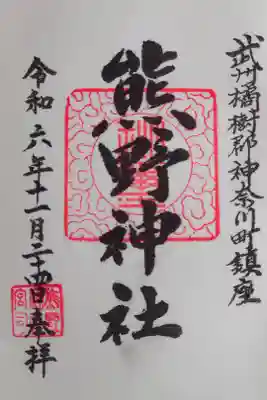 武州橘樹郡神奈川町鎮座
熊野神社
令和六年十一月二十四日奉拝